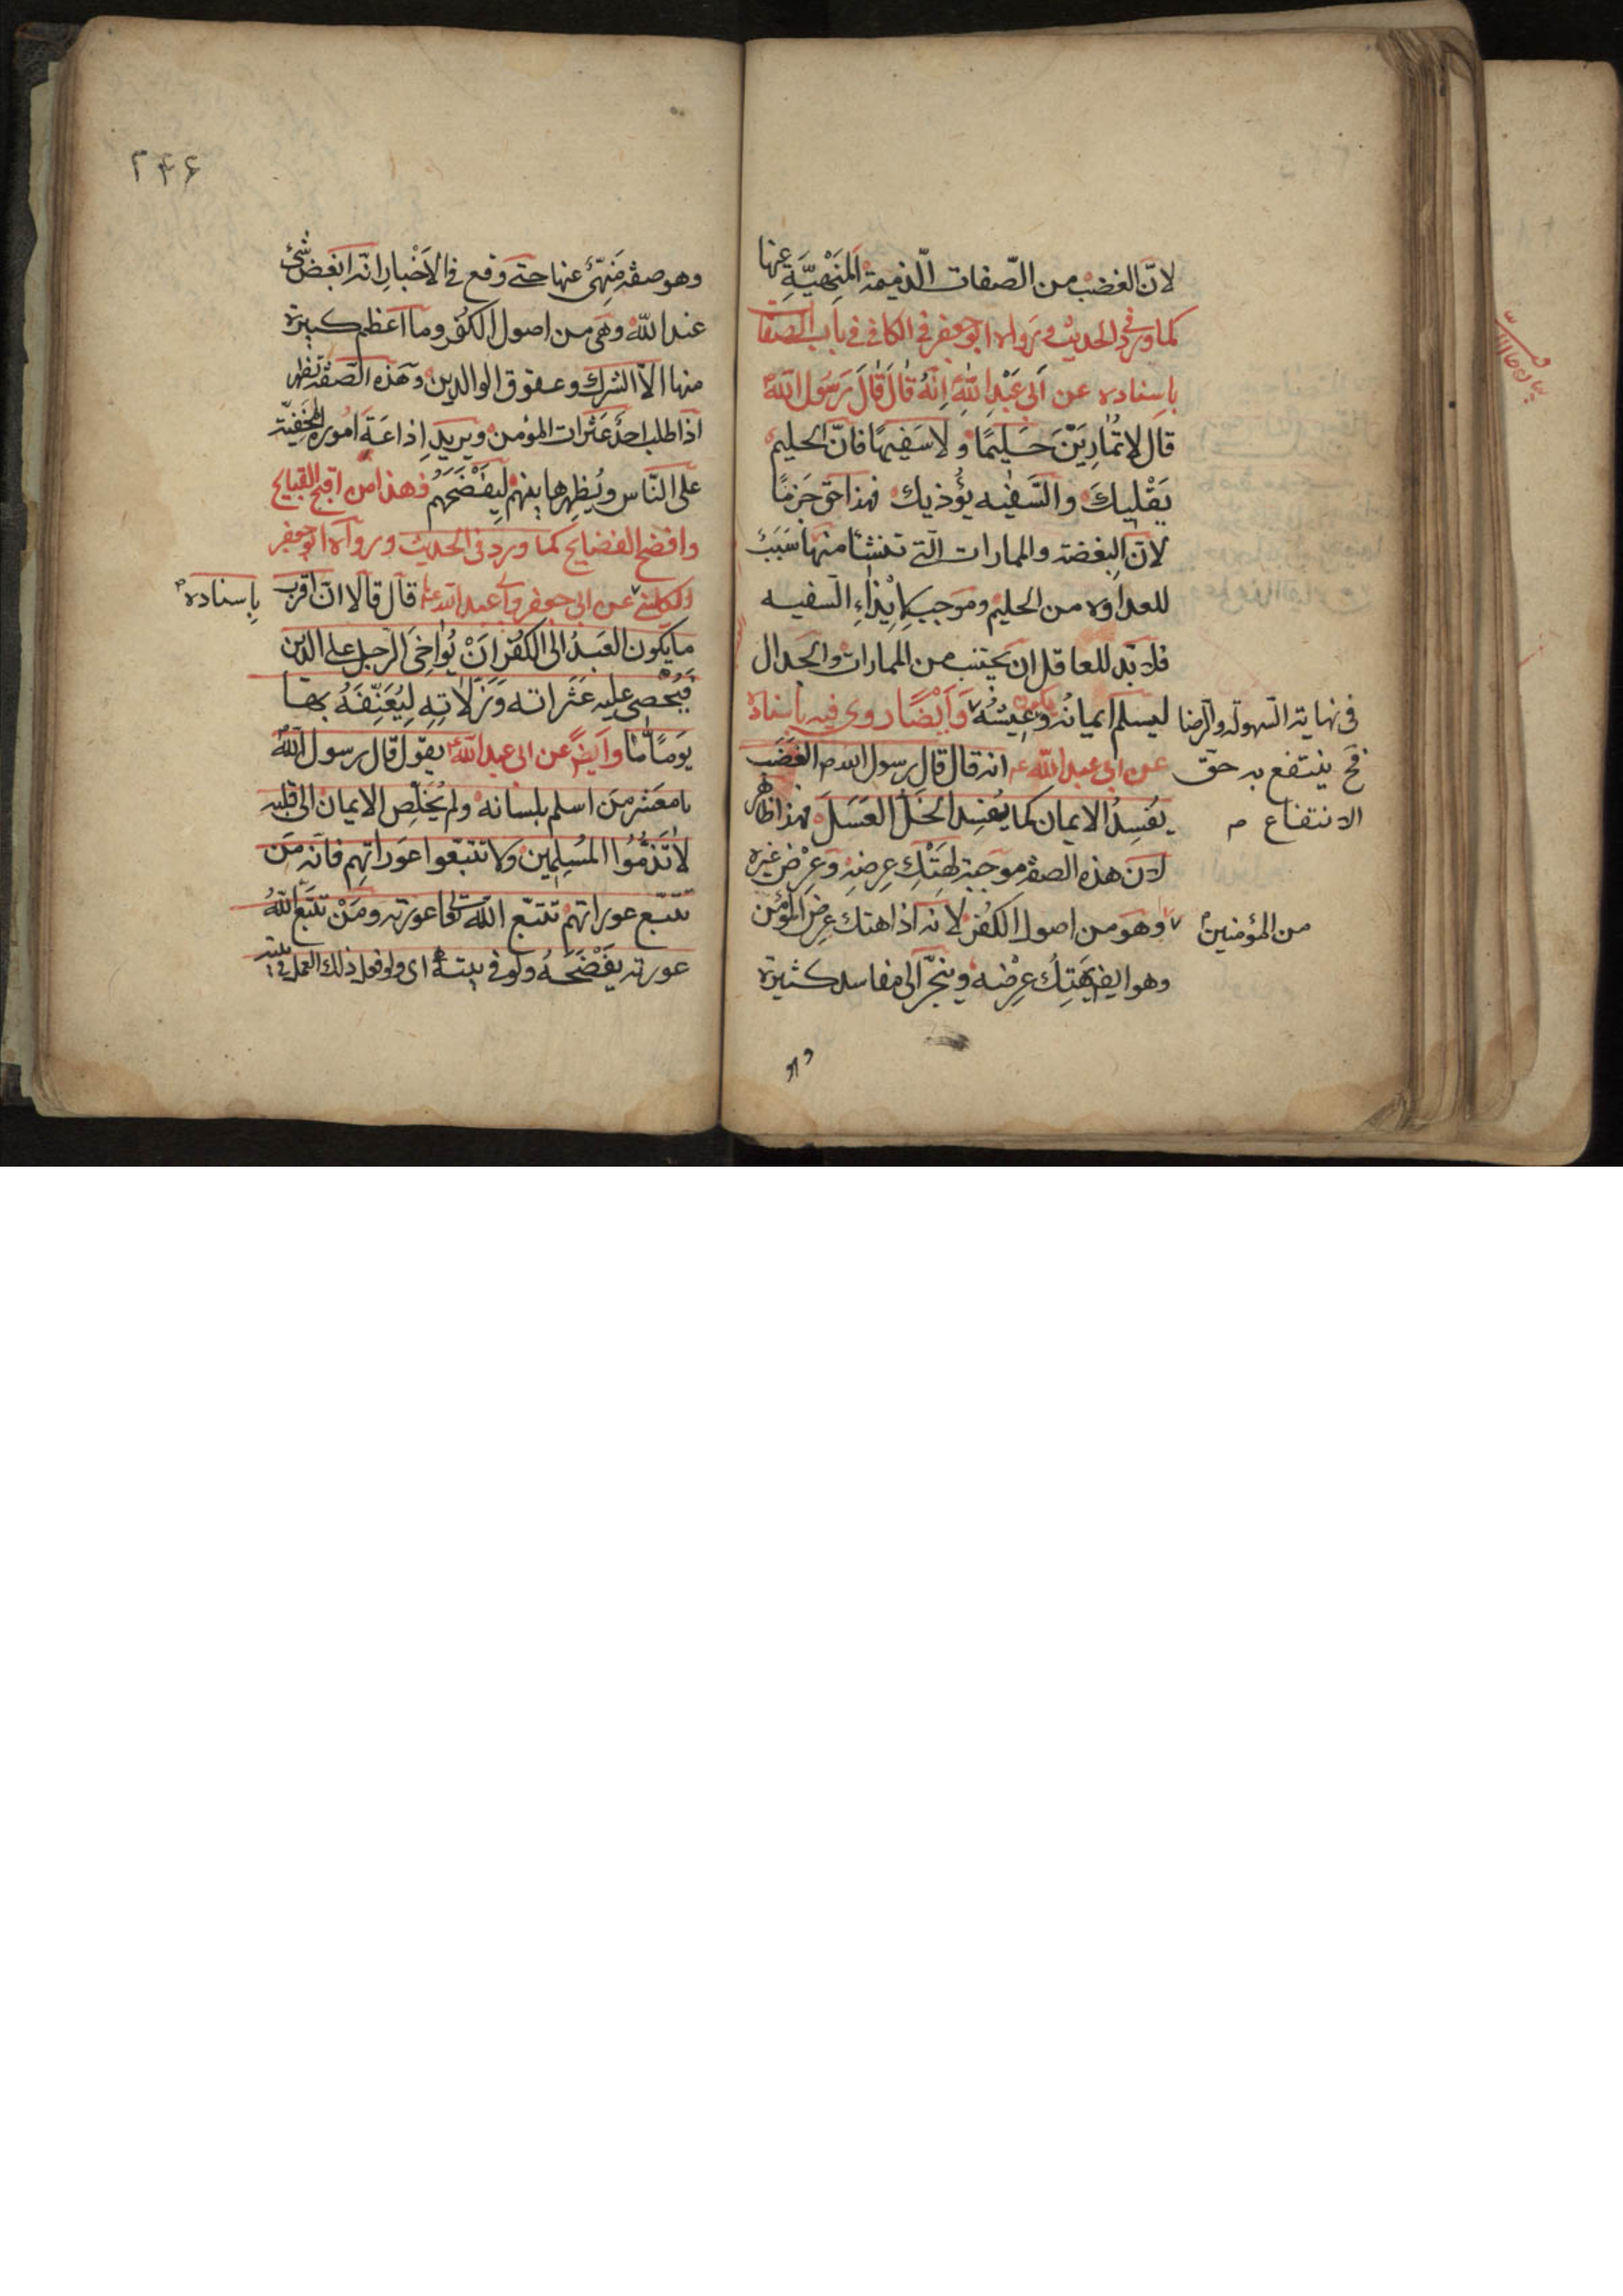 لانّ الغضب من الصّفات الّذميمة المَنْهِيَّةِ عنها
كما ورد في الحديث ورواه ابو جعفر في الكافي في باب الصفا
باِسناده عن اَبي عَبْدِ اللّٰهِ اِنّهُ قٰالَ قٰالَ رَسُول اللّٰه
قال لا تُمٰارِيَنَّ حَليمًا ولا سَفيهًا فانّ الحليم
يَقْليكَ والسَّفيٖه يؤُذيك فهذا حق جَزمًا
لانّ البغضة والممارات الّتى تنشأ منها سَبَب
للعداوة من الحليم وموجب لايْذٰاءِ السّفيه
فلا بّد للعاقل ان يجتنب من الممارات والجدال
ليسلم ايمانُه وعيشُه وَاَيْضًا روى فيه باِسناده
فى نهاية السّهولة والرّضا
فح ينتفع به حقّ
الانتفاع م
عن ابى عبد اللّه ع انه قال قال رسول الله ص الغَضَب
يُفسِدُ الايمان كما يُفسِد الخَلّ العَسَلَ فهذا ظاهر
لان هذه الصفة موجبة لهَتْكِ عِرضِهِ وعِرْض غيره
من المؤمنين
وهو من اصول الكُفر لانه اذا هتك عِرض المؤمن
وهو ايضا يَهتِكُ عِرْضه وينجّر الى مفاسد كثيرة
وهو
٢٤۶
وهو صفة مَنهىّ عنها حتى وقع فى الاَخْبار انّه ابغض شئ
عند اللّه وهى من اصول الكُفر وما اعظم كبيرة
منها الاّ الشرك وعقوق الوالدين وهذه الصّفة تظهر
اذا طلب احدٌ عَثَرات المؤمن ويريد اِذاعَة اموره الخَفيّة
على النّاس ويُظهِرها بينهم ليَفْضَحَهُم فهذا من اقبح القبايح
وافضح الفضايح كما ورد فى الحديث ورواه ابو جعفر
الكلينى عن ابى جعفر وابى عبد اللّه ع قال قالا انّ اقرب
باِسناده
ما يكون العَبدُ الى الكفر اَنْ يُواخِىَ الرّجل على الدين
فيُحْصى عليه عَثَراته وَزَلاّتِهِ لِيُعَنِّفَهُ بها
يَومًا مّا وايضً عن ابى عبد اللّه يقول قال رسول اللّه
يا معشر مَن اسلم بلسانه ولم يُخَلِّص الايمان الى قلبه
لا تَذُمُّوا المُسلِمين ولا تتبّعوا عَوَراتِهِم فانّه مَن
تتبّع عوراتهم تتبّع اللّه تعالى عورته ومَنْ تتبّع اللّٰهُ
عورته يَفْضَحَهُ ولو فى بيته اى ولو فعل ذلك العمل فى بيته